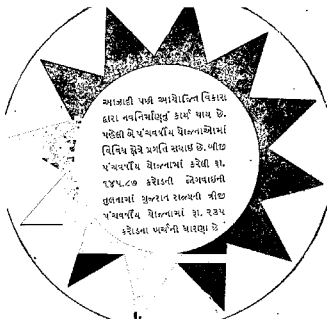 આઝાદી પછી આયોજિત વિકાસ
દ્વારા નવનિર્માણનું કાર્ય થાય છે.
પહેલી બે પંચવર્ષીય યોજનાઓમાં
વિવિધ ક્ષેત્રે પ્રગતિ સધાઇ છે. બીજી
પંચવર્ષીય યોજનામાં કરેલી રૂા.
૧૪૫.૮૭ કરોડની જોગવાઇની
તુલનામાં ગુજરાત રાજ્યની ત્રીજી
પંચવર્ષીય યોજનામાં રૂા. ૨૩૫
કરોડના ખર્ચની ધારણા છે